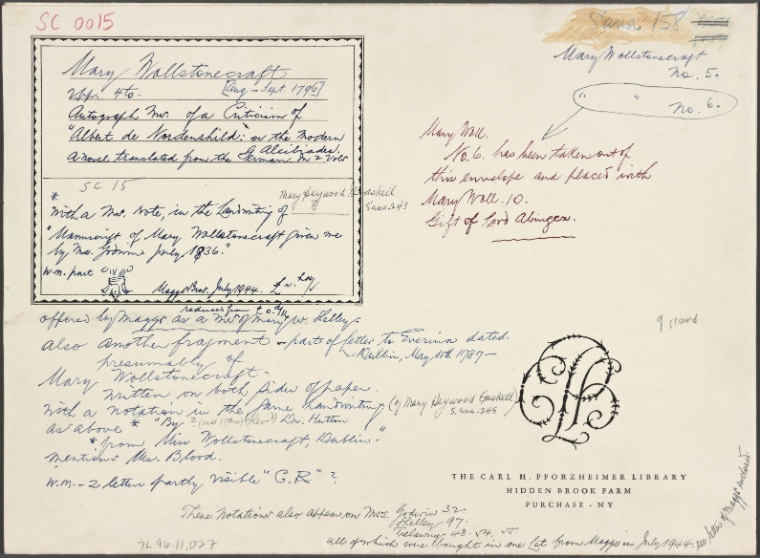 SC 0015
Mary Wollstonecraft
[Aug – Sept. 1796]
4to.
Autograph Ms. of a Criticism of
"Albert de Nordenshild: or the Modern
Alcibiades.
A novel translated from the German in 2 Vols
SC 15
*
With a Ms. note, in the handwriting of
Mary Heywood Gaskell
?
"Manuscript of Mary Wollstonecraft given me
by Mr. Godwin July 1836."
W.M. part
Maggs Bros. July 1944.
reduced from
offered by Maggs as a Ms. of Mary W. Shelley.
Also another fragment – part of letter to Everina dated
Dublin, May 11th 1787 –
presumably of
Mary Wollstonecraft.
Written on both sides of paper.
With a notation in the same handwriting
(of Mary Heywood Gaskell)
as above * "By Dr. Hutton
* from Miss Wollstonecraft, Dublin."
mentions Mrs. Blood.
W.M. – 2 letters partly visible "C.R" ?
These notations also appear on Mss. Godwin 32.
Shelley 97.
Trelawny 43. 54. 55.
all of which were bought in one lot from Maggs in July 1944
see letter of Maggs enclosed
7L96.11,027
158
Mary Wollstonecraft
No. 5.
" " No. 6.
Mary Woll.
No. 6. has been taken out of
this envelope and placed with
Mary Woll. 10.
Gift of Lord Abinger.
THE CARL H. PFORZHEIMER LIBRARY
HIDDEN BROOK FARM
PURCHASE · NY